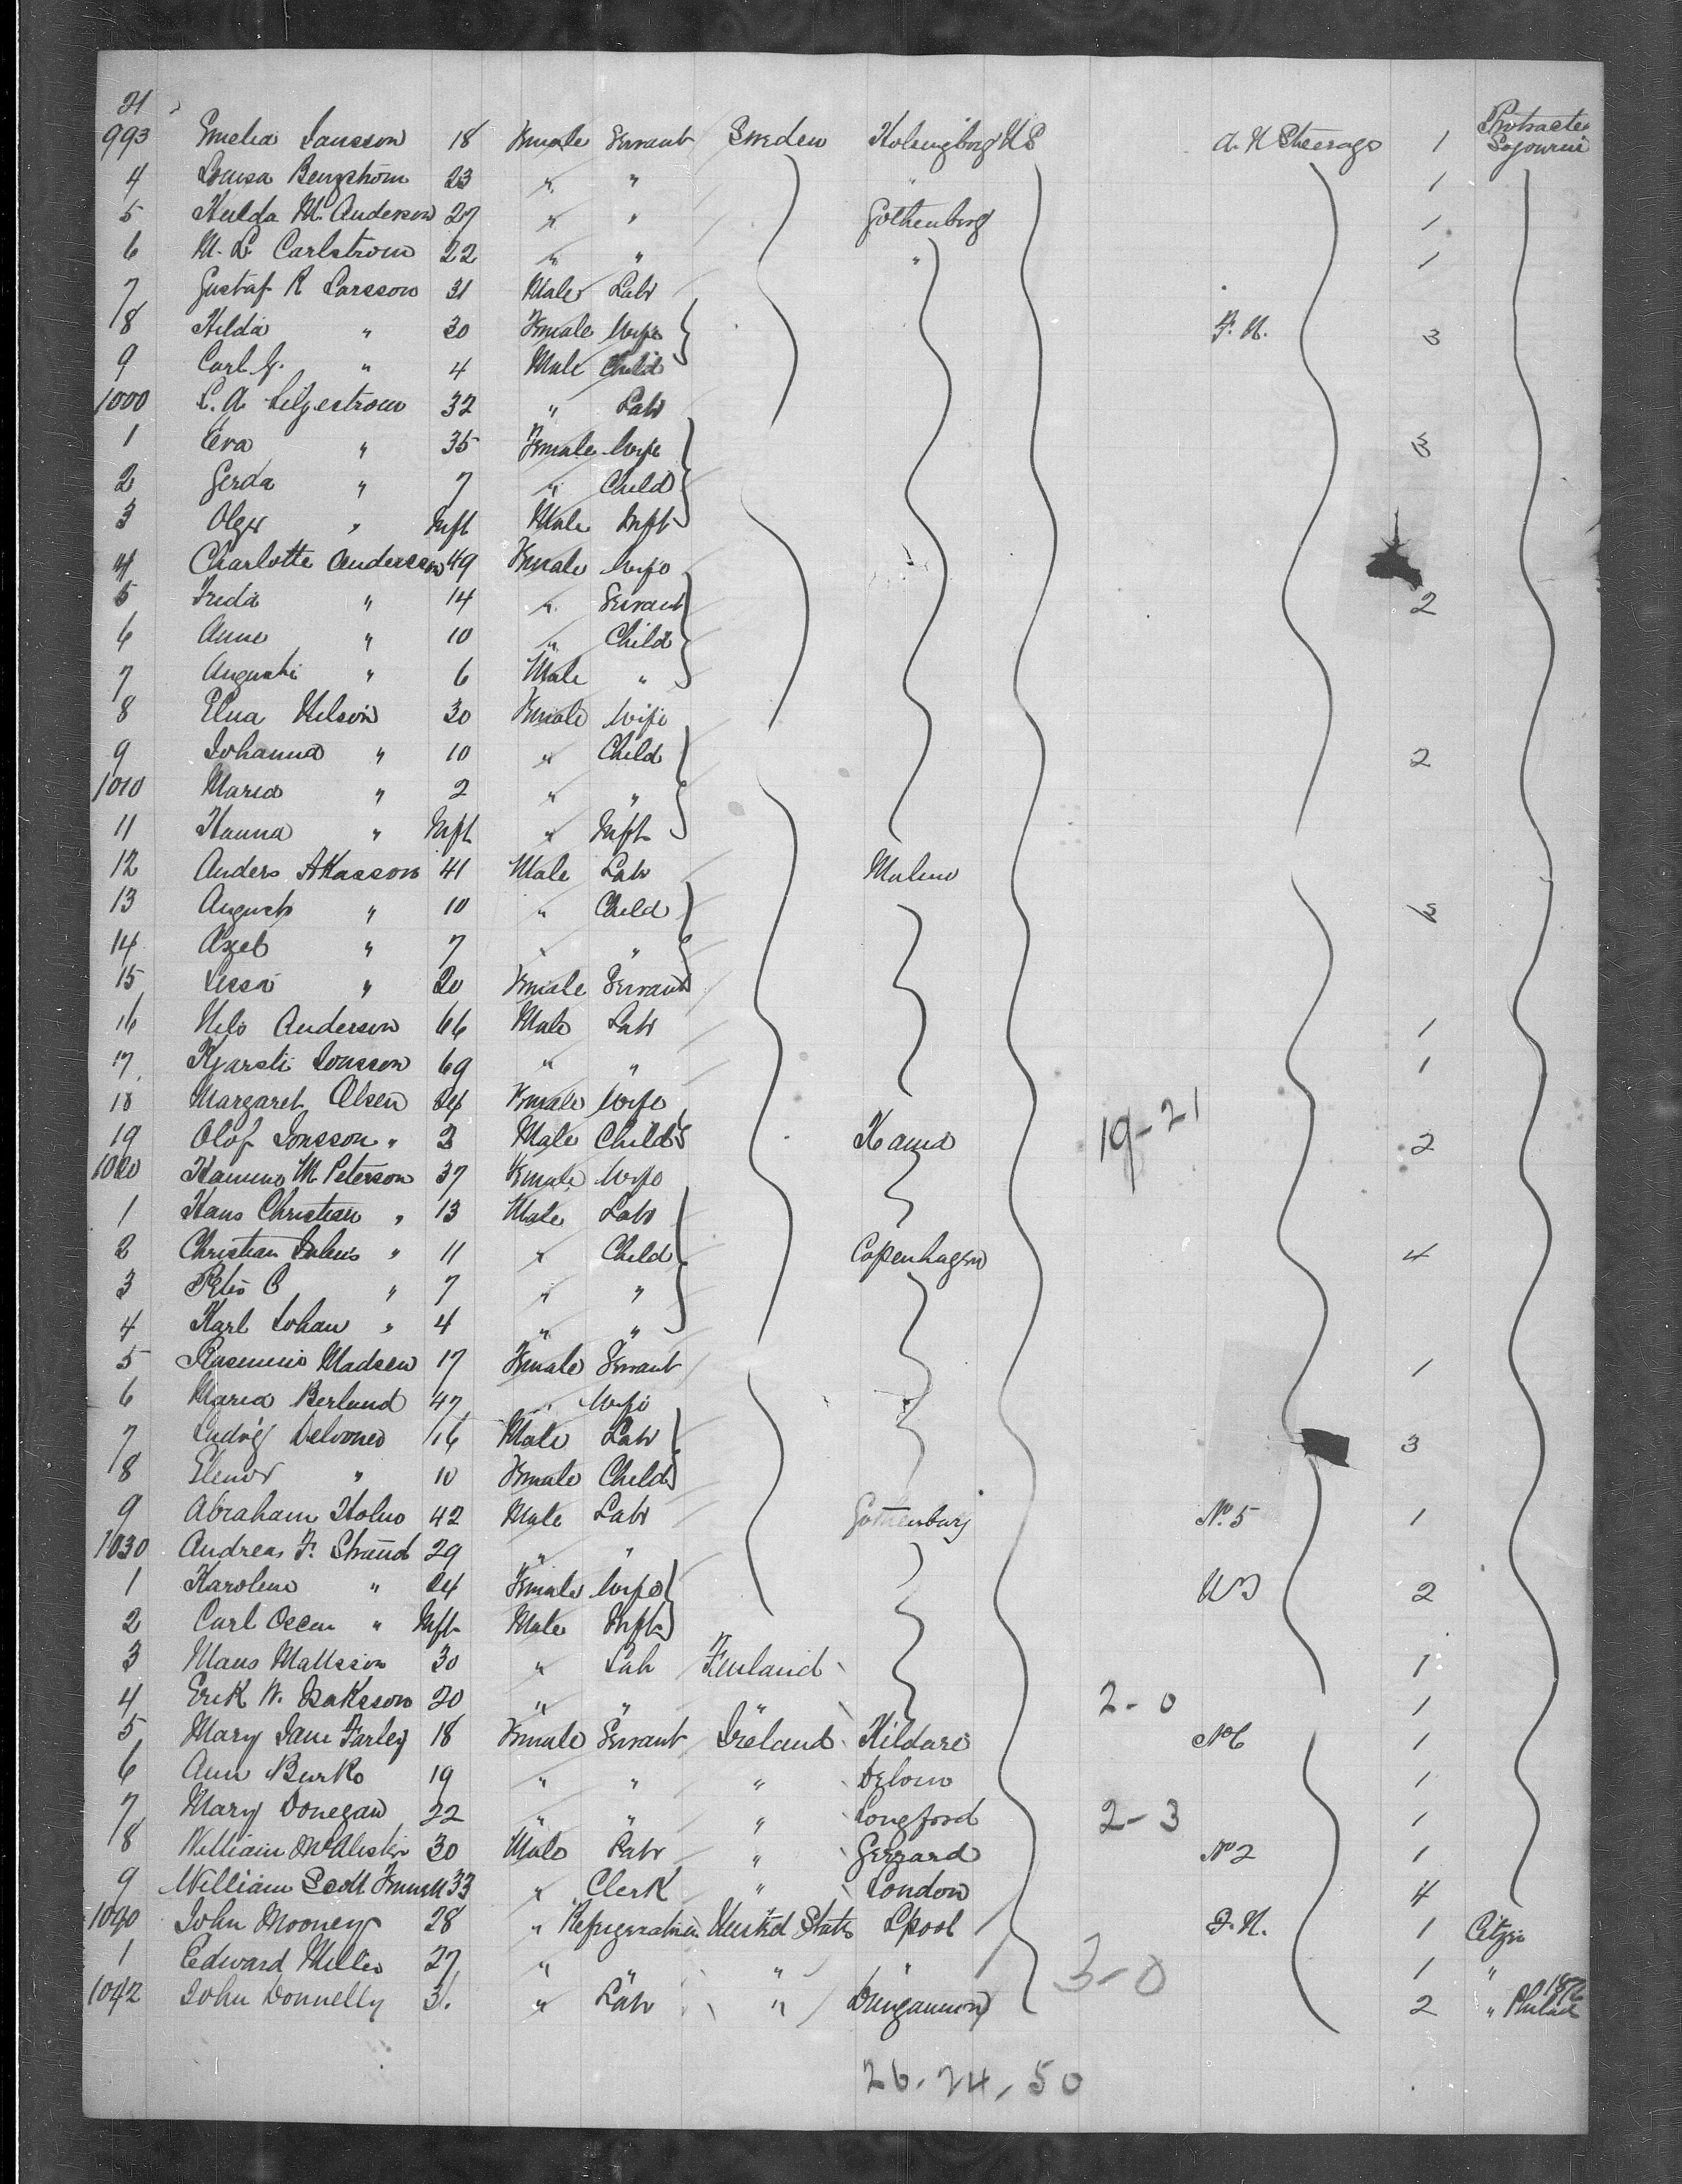 21
993 Emelia Jansson 18 Female Servant Sweden Helsingborg US A. H Steerage 1 Protracted Sojourn
4 Lovisa Bengstrom 23 " " " 1
5 Hulda M. Anderson 27 " " Gothenborg 1
6 M. L. Carlstrom 22 " " " 1
7 Gustaf R Larsson 31 Male Labr
8 Hilda " 30 Female Wife F. H. 3
9 Carl G. " 4 Male Child
1000 L. A Liljestrom 32 " Labr
1 Eva " 35 Female Wife 3
2 Gerda " 7 " Child
3 Olga " Inft Male Inft
4 Charlotte Andersson 49 Female Wife
5 Frida " 14 " Servant 2
6 Anne " 10 " Child
7 " 6 Male "
8 Elna Nelson 30 Female Wife
9 Johanna " 10 " Child 2
1010 Maria " 2 " "
11 Hanna " Inft " Inft
12 Anders Akasson 41 Male Labr Malmo
13 August " 10 " Child 3
14 Axel " 7 " "
15 Lissa " 20 Female Servant
16 Nels Anderson 66 Male Labr 1
17 Kjarsti Jonsson 69 " " 1
18 Margaret Olsen 24 Female Wife
19 Olof Jonsson " 3 Male Child 19-21 2
1020 M. Peterson 37 Female Wife
1 Hans Christian " 13 Male Labr
2 Christian Julius " 11 " Child Copenhagen 4
3 C " 7 " "
4 Karl Johan " 4 " "
5 Madsen 17 Female Servant 1
6 Maria Berlund 47 " Wife
7 Ludvig 16 Male Labr 3
8 Elenor " 10 Female Child
9 Abraham Holm 42 Male Labr Gothenburg No. 5 1
1030 Andreas F. Strand 29 " "
1 Karoline " 24 Female Wife 2
2 Carl Oscar " Inft Male Inft
3 Mans Mattsson 30 " Lab Finland 1
4 Erik W. Isaksson 20 " " " 2-0 1
5 Mary Jane Farley 18 Female Servant Ireland Kildare No 6 1
6 Ann Burke 19 " " " 1
7 Mary Donegan 22 " " " Longford 2-3 1
8 William 30 Male Labr " No 2 1
9 William Scott 33 " Clerk " London 4
1040 John Mooney 28 " United States Lpool F. H. 1 Citizn
1 Edward Miller 27 " " " " 1 "
1042 John Donnelly 31. " Labr " Dungannon 3-0 2 " Philad
26. 24, 50